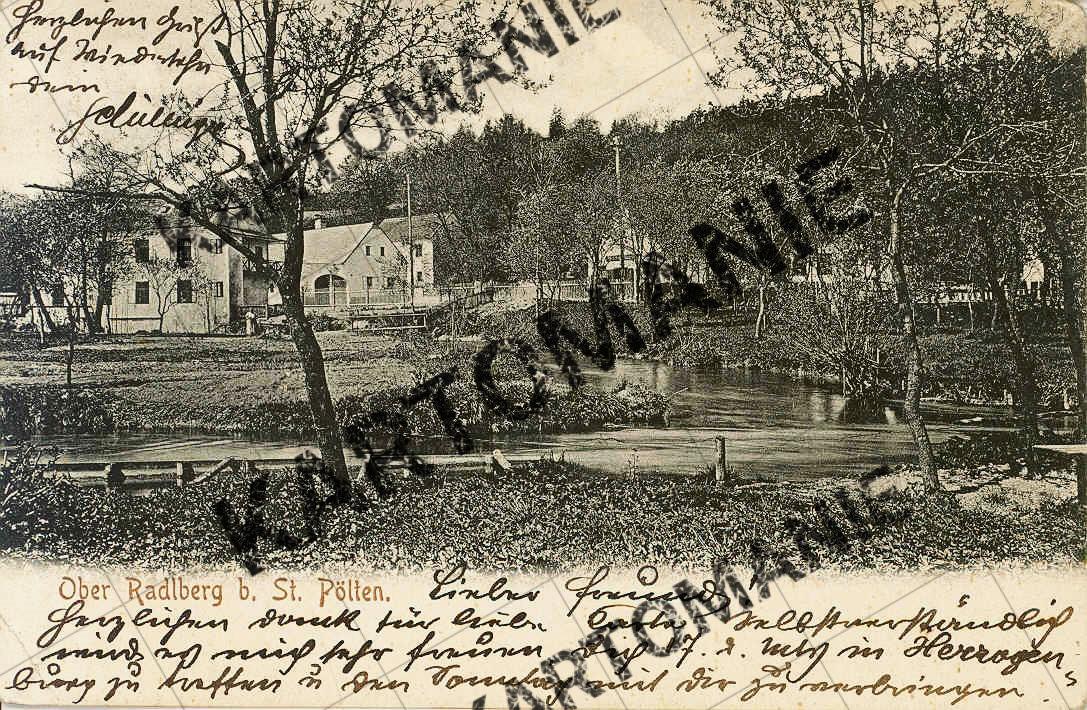 Herzlichen Gruß
auf Wiedersehn
dein
Ober Radlberg b. St. Pölten.
Lieber Freund
Herzlichen dank für liebe Karte. Selbstverständlich
wird es mich sehr freuen Dich 7. d. in Herzogen-
burg zu treffen u den Sonntag mit dir zu verbringen
KARTOMANIE
KARTOMANIE
KARTOMANIE
KARTOMANIE